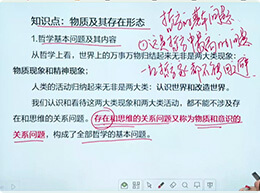 知识点：物质及其存在形态
1.哲学基本问题及其内容
从哲学上看，世界上的万事万物归结起来无非是两大类：
物质现象和精神现象；
人类的活动归结起来无非是两大类：认识世界和改造世界。
我们认识和看待这两大类现象和两大类活动，都不能不涉及
存在和思维的关系问题。存在和思维的关系问题又称为物质和意识的
关系问题，构成了全部哲学的基本问题。
哲学的基本问题
①这是哲学中最高的问题